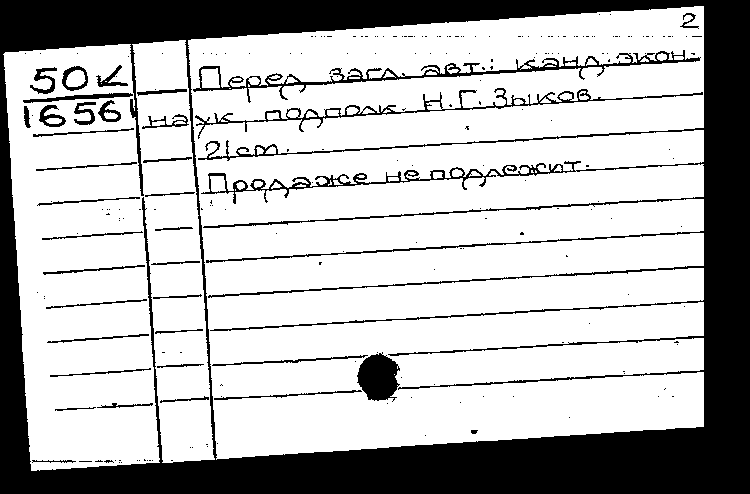 2
50
1656
Перед загл. авт.: канд. экон.
наук, подполк. Н.Г. Зыков.
21 cm.
Продаже не подлежит.